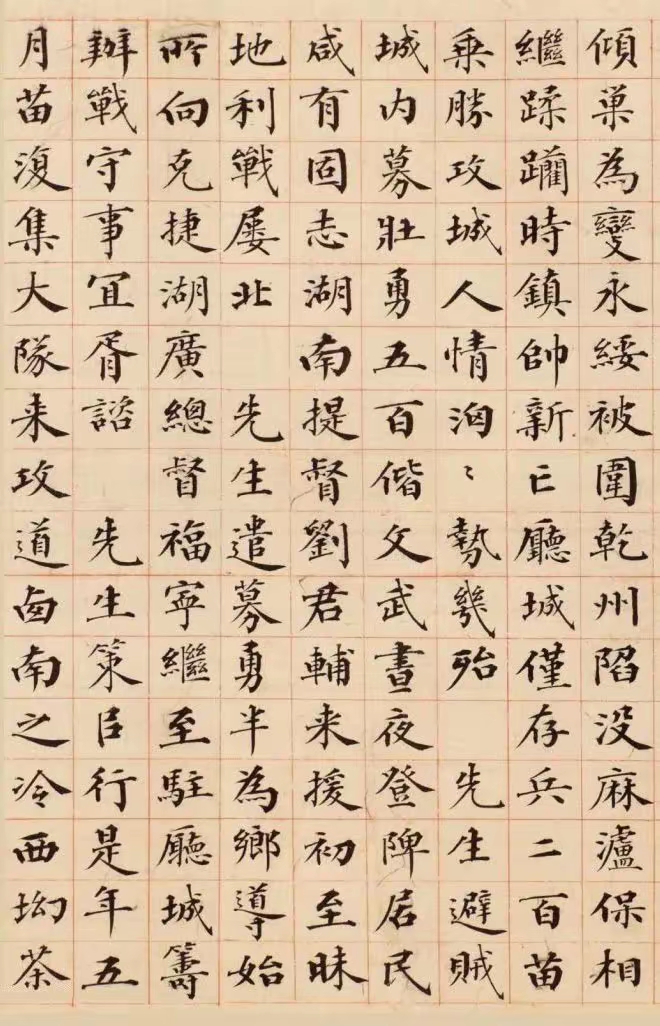 傾巢為變永綏被圍乾州陷没麻瀘保相
繼蹂躪時鎮帥新亡廳城僅存兵二百苗
乗勝攻城人情洶〻勢幾殆　先生避賊
城内募壯勇五百偕文武晝夜登陴居民
咸有固志湖南提督劉君輔来援初至昧
地利戰屡北　先生遣募勇半為鄉導始
所向克捷湖廣總督福寧繼至駐廳城籌
辦戰守事宜胥諮　先生策臣行是年五
月苗復集大隊来攻道南之冷西坳茶